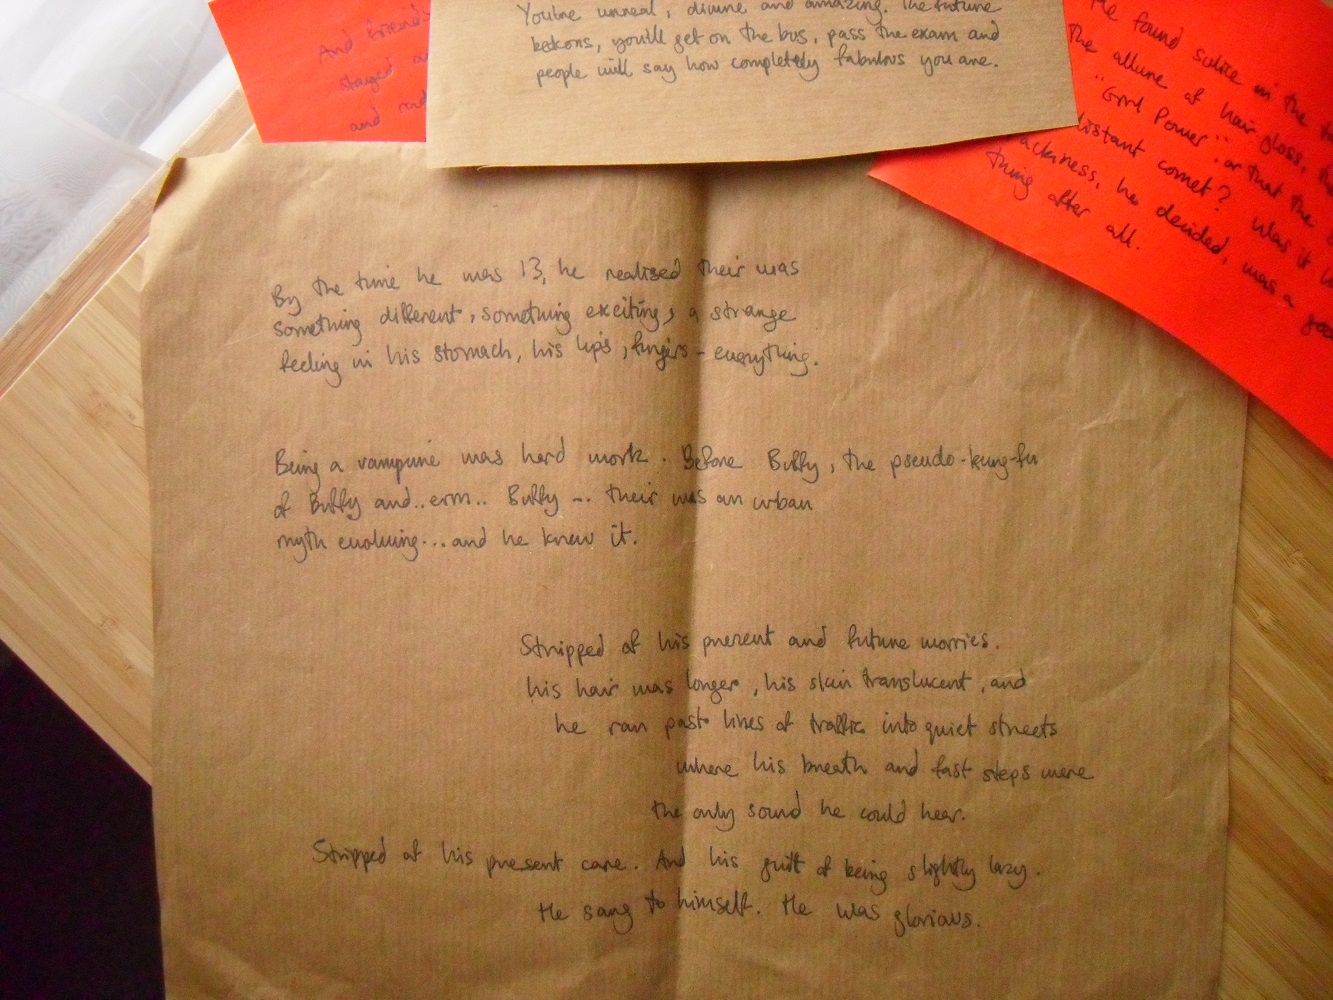 And friends
stayed
and
You're unreal, divine and amazing. The future
bekons, you'll get on the bus, pass the exam and
people will say how completely fabulous you are.
He found solice in the
the allure of hair gloss,
"Grrl Power". or that the
distant comet? Was it
ackiness, he decided, was a
thing after all.
By the time he was 13, he realised their was
something different, something exciting, a strange
feeling in his stomach, his lips, fingers - everything.
Being a vampire was hard work. Before Buffy, the pseudo-kung-fu
of Buffy and..erm.. Buffy ... their was an urban
myth evolving...and he knew it.
Stripped of his present and future worries.
his hair was longer, his skin translucent, and
he ran past lines of traffic into quiet streets
where his breath and fast steps were
the only sound he could hear.
Stripped of his present care. And his guilt of being slightly lazy.
He sang to himself. He was glorious.